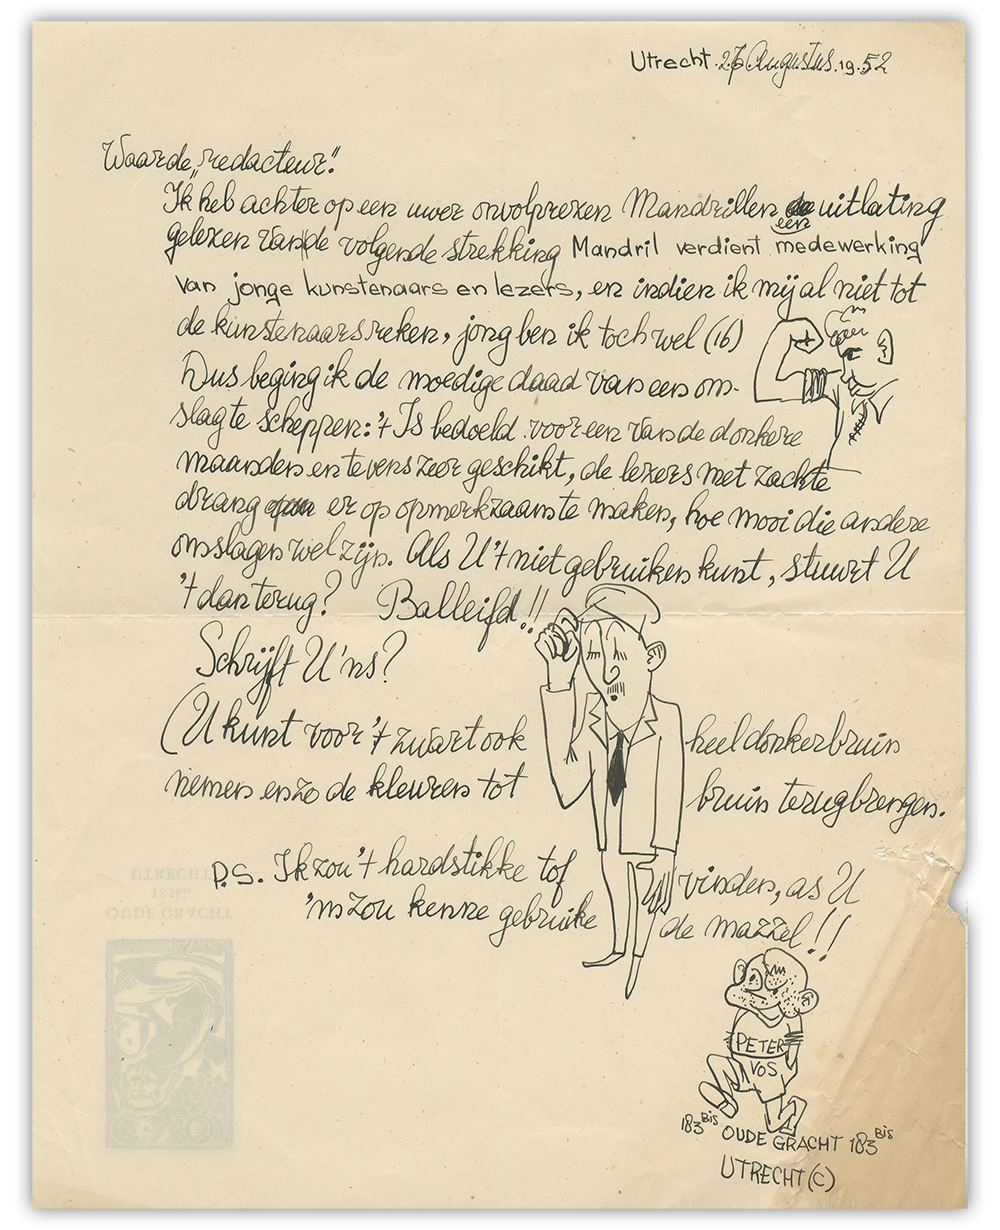 Utrecht. 26 Augustus. 19.52
Waarde „redacteur."
Ik heb achter op een uwer onvolprezen Mandrillen een uitlating
gelezen van de volgende strekking Mandril verdient medewerking
van jonge kunstenaars en lezers, en indien ik mij al niet tot
de kunstenaars reken, jong ben ik toch wel (16)
Dus beging ik de moedige daad van een om-
slag te scheppen: 't Is bedoeld voor een van de donkere
maanden en tevens zeer geschikt, de lezers met zachte
drang er op opmerkzaam te maken, hoe mooi die andere
omslagen wel zijn. Als U 't niet gebruiken kunt, stuurt U
't dan terug? Balleifd!!
Schrijft U 'ns?
(U kunt voor 't zwart ook heel donkerbruin
nemen en zo de kleuren tot bruin terugbrengen.
P.S. Ik zou 't hardstikke tof vinden, as U
'm zou kenne gebruike de mazzel!!
PETER
VOS
183 BIS OUDE GRACHT 183 BIS
UTRECHT (C)
UTRECHT
183bis
OUDE GRACHT